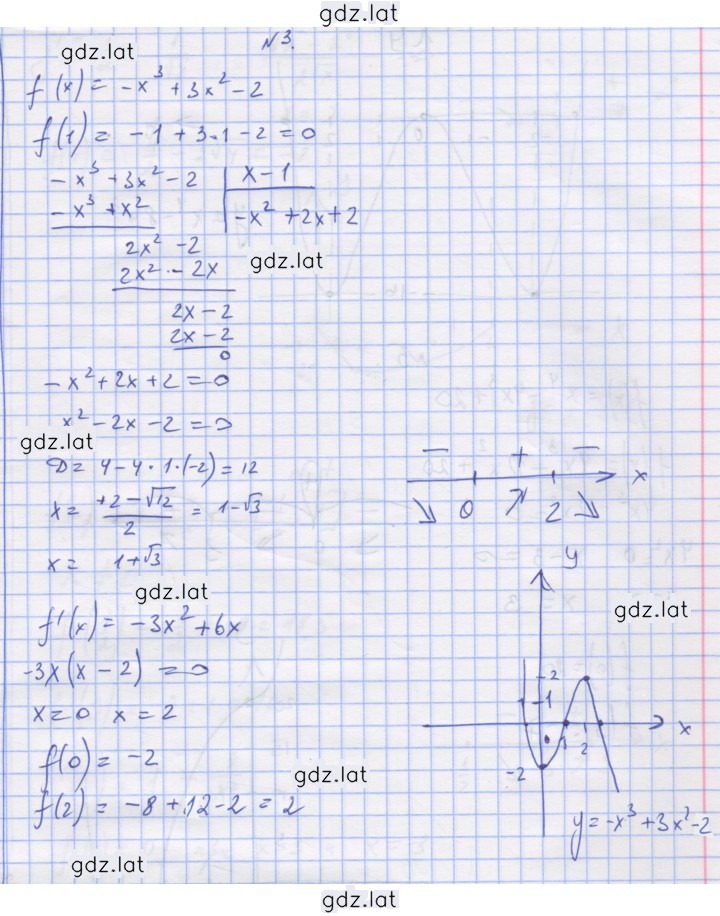 gdz.lat
gdz.lat
N3.
f(x) = -x³ + 3x² - 2
f(1) = -1 + 3·1 - 2 = 0
-x³ + 3x² - 2 | x - 1
-x³ + x² | -x² + 2x + 2
2x² - 2
2x² - 2x
gdz.lat
2x - 2
2x - 2
0
-x² + 2x + 2 = 0
x² - 2x - 2 = 0
gdz.lat
D = 4 - 4·1·(-2) = 12
x = +2 - √12 / 2 = 1 - √3
x = 1 + √3
- + -
↘ 0 ↗ 2 ↘ x
gdz.lat
f'(x) = -3x² + 6x
-3x(x - 2) = 0
x = 0 x = 2
f(0) = -2
f(2) = -8 + 12 - 2 = 2
y
gdz.lat
2
1
x
1 2
-2
gdz.lat
y = -x³ + 3x² - 2
gdz.lat
gdz.lat